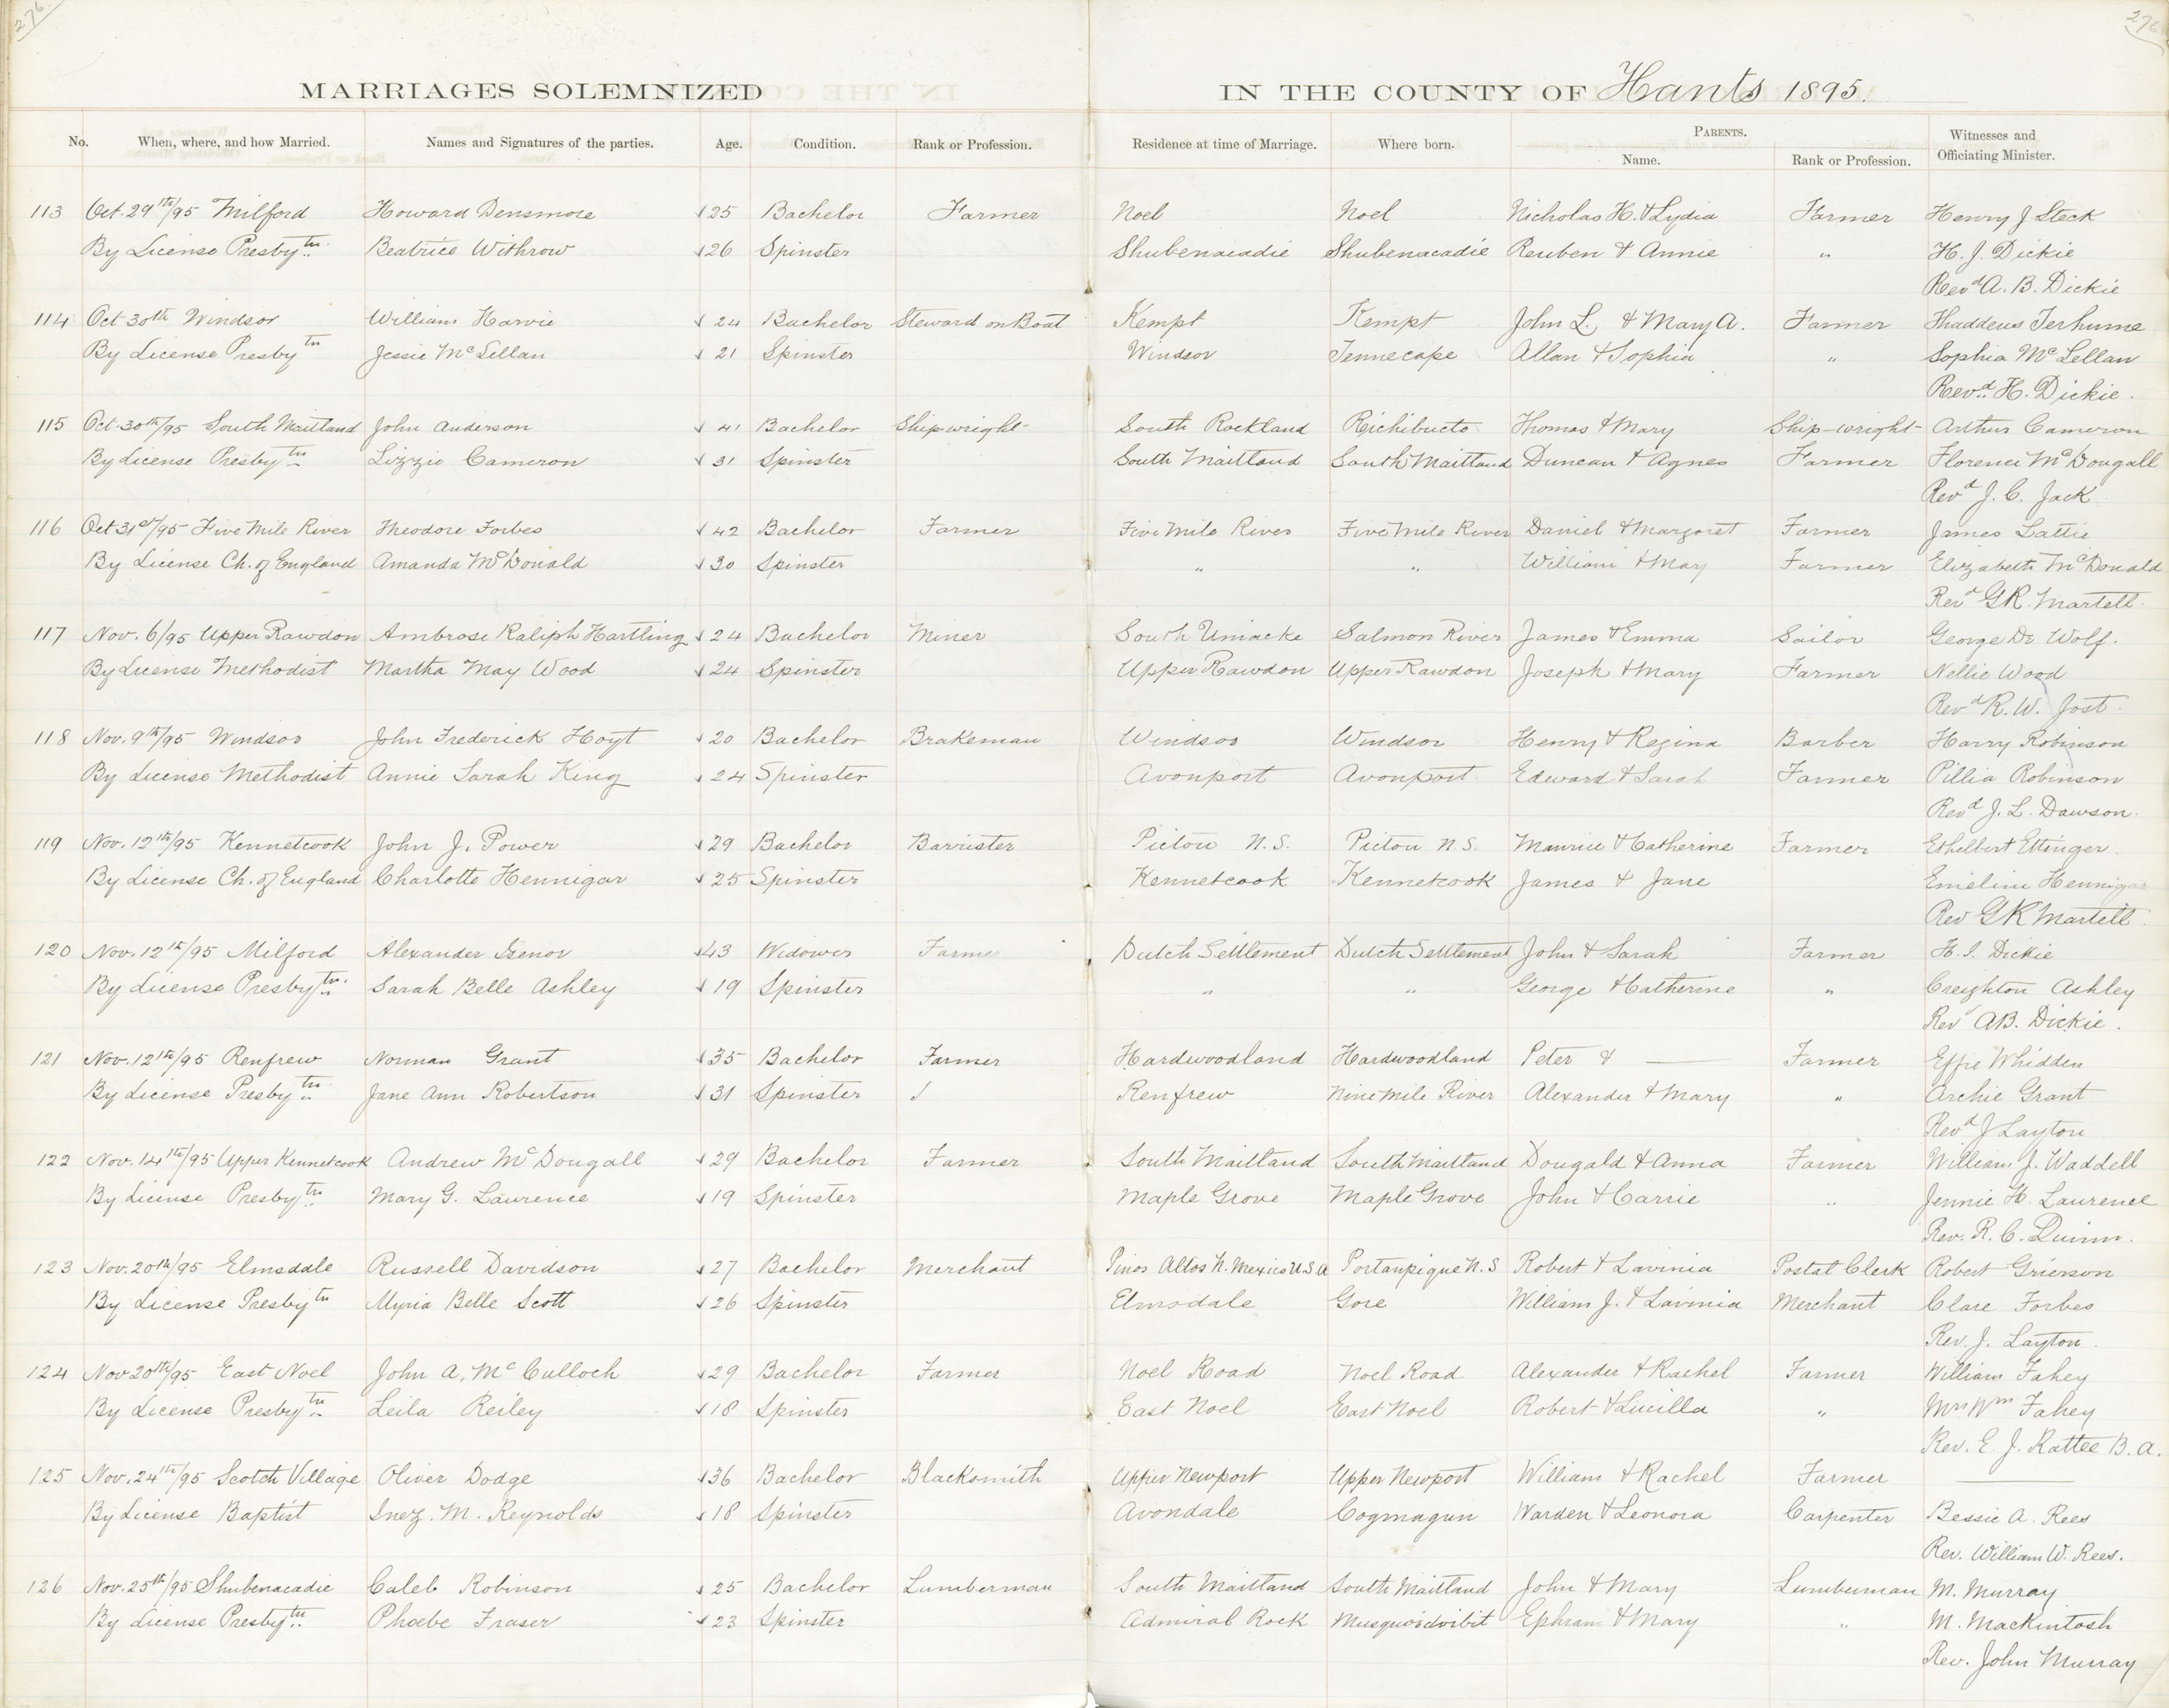 276.
276
MARRIAGES SOLEMNIZED IN THE COUNTY OF Hants 1895.
No. When, where, and how Married. Names and Signatures of the parties. Age. Condition. Rank or Profession. Residence at time of Marriage. Where born. PARENTS. Name. Rank or Profession. Witnesses and Officiating Minister.
113 Oct. 29th/95 Milford Howard Densmore 25 Bachelor Farmer Noel Noel Nicholas H. & Lydia Farmer Henry J Steck
By License Presbytn. Beatrice Withrow 26 Spinster Shubenacadie Shubenacadie Reuben & Annie " H. J. Dickie
Revd A. B. Dickie
114 Oct 30th Windsor William Harvie 24 Bachelor Steward on Boat Kempt Kempt John L. & Mary A. Farmer Thaddeus Terhume
By License Presbytn Jessie McLellan 21 Spinster Windsor Tennecape Allan & Sophia " Sophia McLellan
Revd. H. Dickie.
115 Oct. 30th/95 South Maitland John Anderson 41 Bachelor Ship-wright South Rockland Richibucto Thomas & Mary Ship-wright Arthur Cameron
By License Presbytn Lizzie Cameron 31 Spinster South Maitland South Maitland Duncan & Agnes Farmer Florence McDougall
Revd J. C. Jack
116 Oct 31st/95 Five Mile River Theodore Forbes 42 Bachelor Farmer Five Mile River Five Mile River Daniel & Margaret Farmer James Lattie
By License Ch. of England Amanda McDonald 30 Spinster " " William & Mary Farmer Elizabeth McDonald
Revd GR. Martell.
117 Nov. 6/95 Upper Rawdon Ambrose Raliph Hartling 24 Bachelor Miner South Uniacke Salmon River James & Emma Sailor George De Wolf.
By License Methodist Martha May Wood 24 Spinster Upper Rawdon Upper Rawdon Joseph & Mary Farmer Nellie Wood
Revd R. W. Jost.
118 Nov. 9th/95 Windsor John Frederick Hoyt 20 Bachelor Brakeman Windsor Windsor Henry & Regina Barber Harry Robinson
By License Methodist Annie Sarah King 24 Spinster Avonport Avonport Edward & Sarah Farmer Pillia Robinson
Revd J. L. Dawson.
119 Nov. 12th/95 Kennetcook John J. Power 29 Bachelor Barrister Pictou N.S. Pictou N.S. Maurice & Catherine Farmer Ethelbert Ettinger
By License Ch. of England Charlotte Hennigar 25 Spinster Kennetcook Kennetcook James & Jane Emeline Hennigar
Rev GR Martell.
120 Nov. 12th/95 Milford Alexander Isenor 43 Widower Farmer Dutch Settlement Dutch Settlement John & Sarah Farmer H. I. Dickie
By License Presbytn. Sarah Belle Ashley 19 Spinster " " George & Catherine " Creighton Ashley
Revd AB. Dickie.
121 Nov. 12th/95 Renfrew Norman Grant 35 Bachelor Farmer Hardwoodland Hardwoodland Peter & — Farmer Effie Whidden
By License Presbytn. Jane Ann Robertson 31 Spinster Renfrew Nine Mile River Alexander & Mary " Archie Grant
Revd J Layton
122 Nov. 14th/95 Upper Kennetcook Andrew McDougall 29 Bachelor Farmer South Maitland South Maitland Dougald & Anna Farmer William J. Waddell
By License Presbytn Mary G. Laurence 19 Spinster Maple Grove Maple Grove John & Carrie " Jennie H. Laurence
Rev. R. C. Quinn.
123 Nov. 20th/95 Elmsdale Russell Davidson 27 Bachelor Merchant Pinos Altos N. Mexico U.S.A Portaupique N.S Robert & Lavinia Postal Clerk Robert Grierson
By License Presbytn Myria Belle Scott 26 Spinster Elmsdale Gore William J. & Lavinia Merchant Clare Forbes
Rev. J. Layton.
124 Nov 20th/95 East Noel John A. McCulloch 29 Bachelor Farmer Noel Road Noel Road Alexander & Rachel Farmer William Fahey
By License Presbytn Leila Reiley 18 Spinster East Noel East Noel Robert & Lucilla " Mrs Wm Fahey
Rev. E. J. Rattee B.A.
125 Nov. 24th/95 Scotch Village Oliver Dodge 36 Bachelor Blacksmith Upper Newport Upper Newport William & Rachel Farmer —
By License Baptist Inez. M. Reynolds 18 Spinster Avondale Cogmagun Warden & Leonora Carpenter Bessie A. Rees
Rev. William W. Rees.
126 Nov. 25th/95 Shubenacadie Caleb Robinson 25 Bachelor Lumberman South Maitland South Maitland John & Mary Lumberman M. Murray
By License Presbytn. Phoebe Fraser 23 Spinster Admiral Rock Musquoidoibit Ephram & Mary " M. Mackintosh
Rev. John Murray